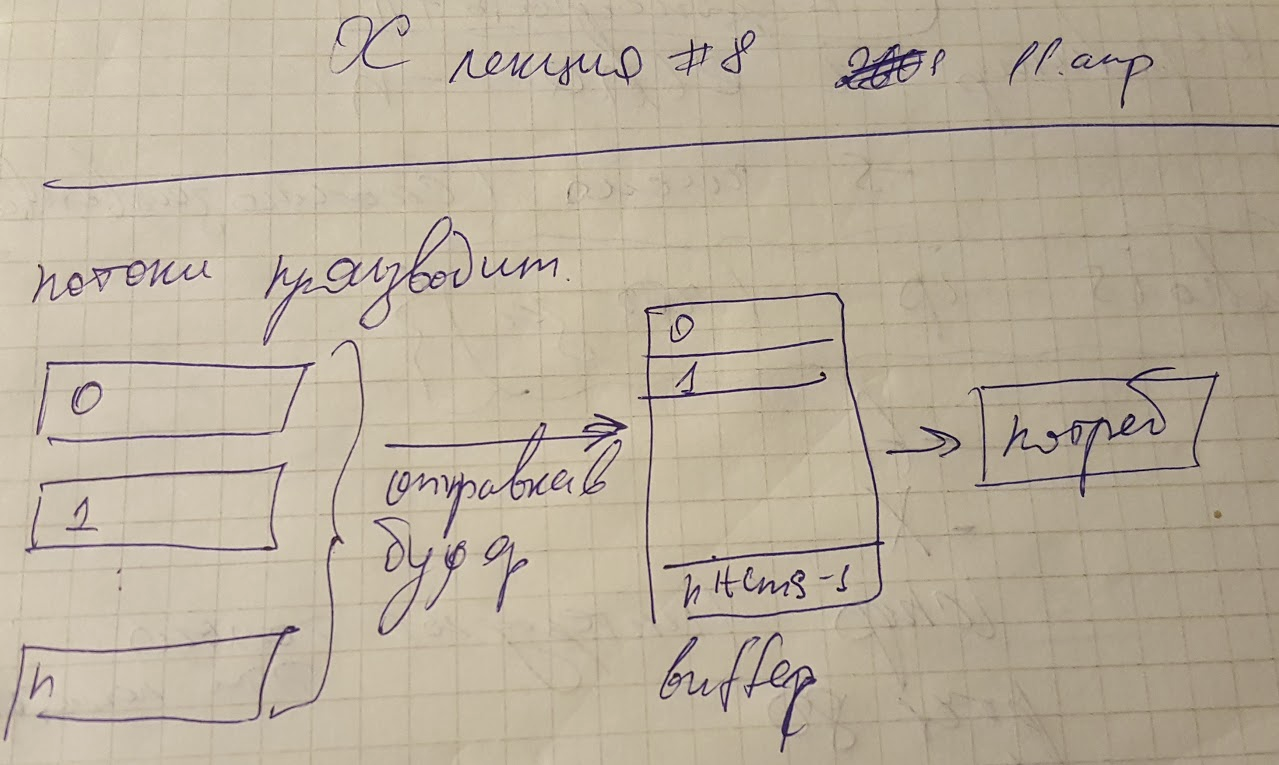 ОС лекция #8 11.апр
потоки производит.
0
1
n
отправка в
буфф
0
1
nItems-1
buffer
потреб